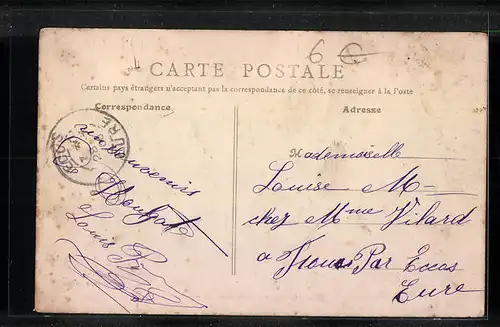 6
CARTE POSTALE
Certains pays étrangers n'acceptant pas la correspondance de ce côté, se renseigner à la Poste
Correspondance
Adresse
EURE
Bons souvenirs
Louis
Mademoiselle
Louise M
chez Mme Vilard
a Par Ecos
Eure